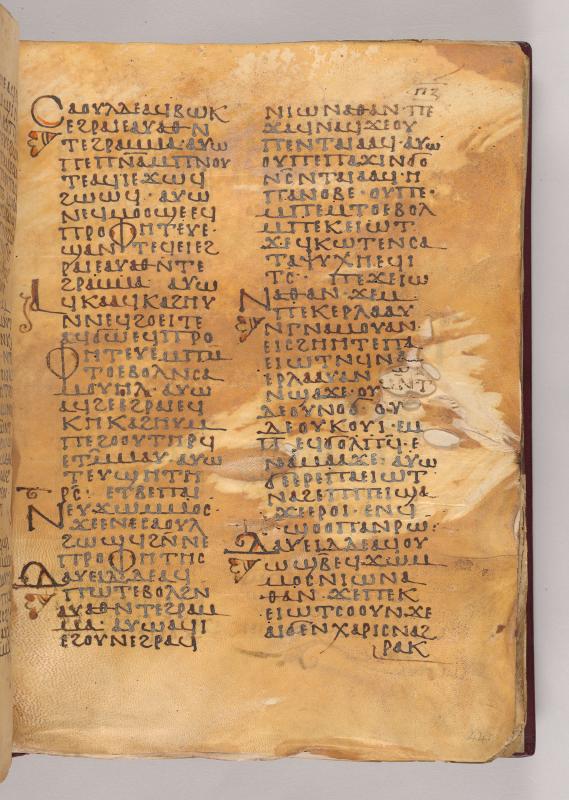 ⲡⲍ
ⲥⲁⲟⲩⲗⲇⲉⲁϥⲃⲱⲕ
ⲉϩⲣⲁⲓⲉⲁⲩⲁⲑⲛ
ⲧⲉϩⲣⲁⲙⲙⲁ·ⲁⲩⲱ
ⲡⲉⲡⲛⲁⲙⲡⲛⲟⲩ
ⲧⲉⲁϥⲓⲉϫⲱϥ
ϩⲱⲱϥ· ⲁⲩⲱ
ⲛⲉϥⲙⲟⲟϣⲉⲉϥ
ⲡⲣⲟⲫⲏⲧⲉⲩⲉ·
ϣⲁⲛⲧⲉϥⲉⲓⲉϩ
ⲣⲁⲓⲉⲁⲩⲁⲑⲛⲧⲉ
ϩⲣⲁⲙⲙⲁ ⲁⲩⲱ
ⲁϥⲕⲁⲁϥⲕⲁϩⲏⲩ
ⲛⲛⲉϥϩⲟⲉⲓⲧⲉ
ⲁϥϭⲱⲉϥⲡⲣⲟ
ⲫⲏⲧⲉⲩⲉⲙⲡⲙ
ⲧⲟⲉⲃⲟⲗⲛⲥⲁ
ⲙⲟⲩⲏⲗ·ⲁⲩⲱ
ⲁϥϩⲉⲉϩⲣⲁⲓⲉϥ
ⲕⲏⲕⲁϩⲏⲩⲙ
ⲡⲉϩⲟⲟⲩⲧⲏⲣϥ
ⲉⲧⲙⲙⲁⲩ·ⲁⲩⲱ
ⲧⲉⲩϣⲏⲧⲏ
ⲣⲥ· ⲉⲧⲃⲉⲡⲁⲓ
ⲛⲉⲩϫⲱⲙⲙⲟⲥ·
ϫⲉⲉⲛⲉⲥⲁⲟⲩⲗ
ϩⲱⲱϥϩⲛⲛⲉ
ⲡⲣⲟⲫⲏⲧⲏⲥ
ⲇⲁⲩⲉⲓⲇⲇⲉⲁϥ
ⲡⲱⲧⲉⲃⲟⲗϩⲛ
ⲁⲩⲁⲑⲛⲧⲉϩⲣⲁⲙ
ⲙⲁ· ⲁⲩⲱⲁϥⲓ
ⲉϩⲟⲩⲛⲉϩⲣⲁϥ
ⲛⲓⲱⲛⲁⲑⲁⲛ·ⲡⲉ
ϫⲁϥⲛⲁϥϫⲉⲟⲩ
ⲡⲉⲛⲧⲁⲓⲁⲁϥ·ⲁⲩⲱ
ⲟⲩⲡⲉⲡⲁϫⲓⲛϭⲟ
ⲛⲥⲛⲧⲁⲓⲁⲁϥ·ⲏ
ⲡⲁⲛⲟⲃⲉ·ⲟⲩⲡⲉ·
ⲙⲡⲉⲙⲧⲟⲉⲃⲟⲗ
ⲙⲡⲉⲕⲉⲓⲱⲧ
ϫⲉϥⲕⲱⲧⲉⲛⲥⲁ
ⲧⲁⲯⲩⲭⲏⲉϥⲓ
ⲧⲥ· ⲡⲉϫⲉⲓⲱ
ⲛⲁⲑⲁⲛ·ϫⲉⲙ
ⲡⲉⲕⲉⲣⲗⲁⲁⲩ
ⲛⲅⲛⲁⲙⲟⲩⲁⲛ·
ⲉⲓⲥϩⲏⲏⲧⲉⲡⲁ
ⲉⲓⲱⲧⲛϥⲛⲁ
ⲉⲣⲗⲁⲁⲩⲁⲛ
ⲛϣⲁϫⲉ·ⲟⲩ
ⲇⲉⲟⲩⲛⲟϭ·ⲟⲩ
ⲇⲉⲟⲩⲕⲟⲩⲓ·ⲉⲙ
ⲡ ⲉϥϭⲟⲗⲡϥ·ⲉ
ⲛⲁⲙⲁⲁϫⲉ·ⲁⲩⲱ
ϩⲉⲉⲣⲉⲡⲁⲉⲓⲱⲧ
ⲛⲁϩⲉⲡⲡⲉⲓϣⲁ
ϫⲉⲉⲣⲟⲓ·ⲉⲛϥ
ϣⲟⲟⲡⲁⲛⲣⲱ·
ⲇⲁⲩⲉⲓⲇⲇⲉⲁϥⲟⲩ
ⲱϣⲃⲉϥϫⲱⲙ
ⲙⲟⲥⲛⲓⲱⲛⲁ
ⲑⲁⲛ·ϫⲉⲡⲉⲕ
ⲉⲓⲱⲧⲥⲟⲟⲩⲛ·ϫⲉ
ⲁⲓϭⲉⲛⲭⲁⲣⲓⲥⲛⲁϩ
ⲣⲁⲕ